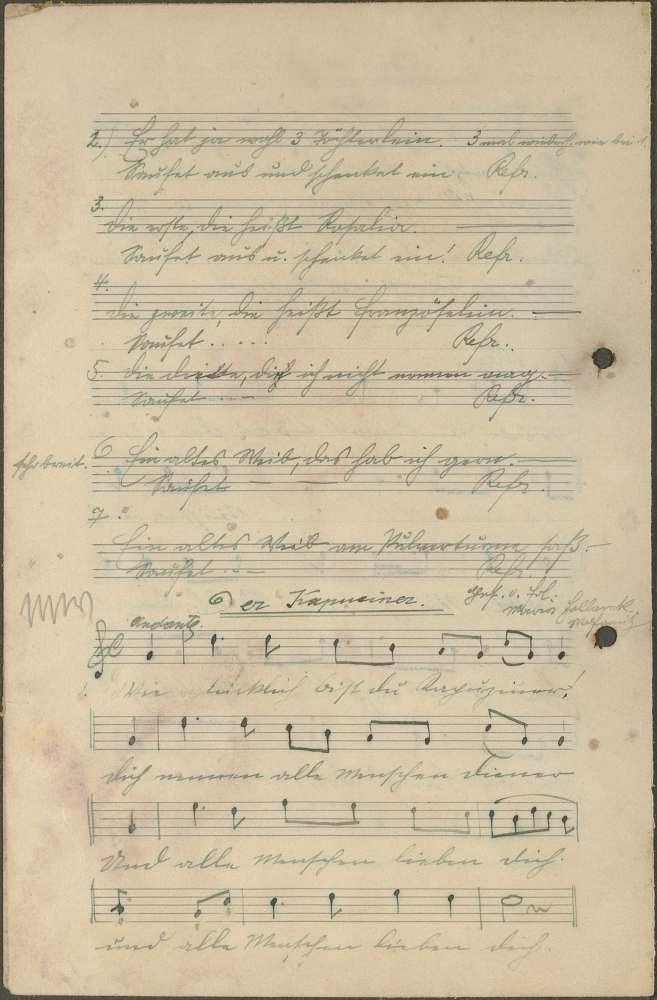 2.) Er hat ja wohl 3 Töchterlein. 3 mal wie bei 1.
Saufet aus und schenket ein Refr.
3. Die erste, die heißt Rosalia.
Saufet aus u. schenket ein! Refr.
4. Die zweite, die heißt Französelein.
Saufet . . . . . Refr.
5. Die dritte, die ich nicht nennen mag.
Saufet Refr.
sehr breit. 6 Ein altes Weib, das hab ich gern.
Saufet Refr.
7. Ein altes Weib am Pulverturme saß.
Saufet . . Refr.
Der Kapuziner. Ges. v. Frl.
Maria
Andante.
1. Wie glücklich bist du Kapuziner!
Dich nennen alle Menschen Diener
Und alle Menschen lieben dich.
und alle Menschen lieben dich.